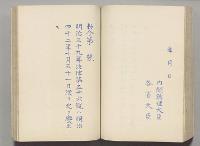 年月日
内閣總理大臣
各省大臣
勅令第　號
明治三十九年法律第五十六號ハ明治
四十二年十月三十一日限リ之ヲ廢止
ス